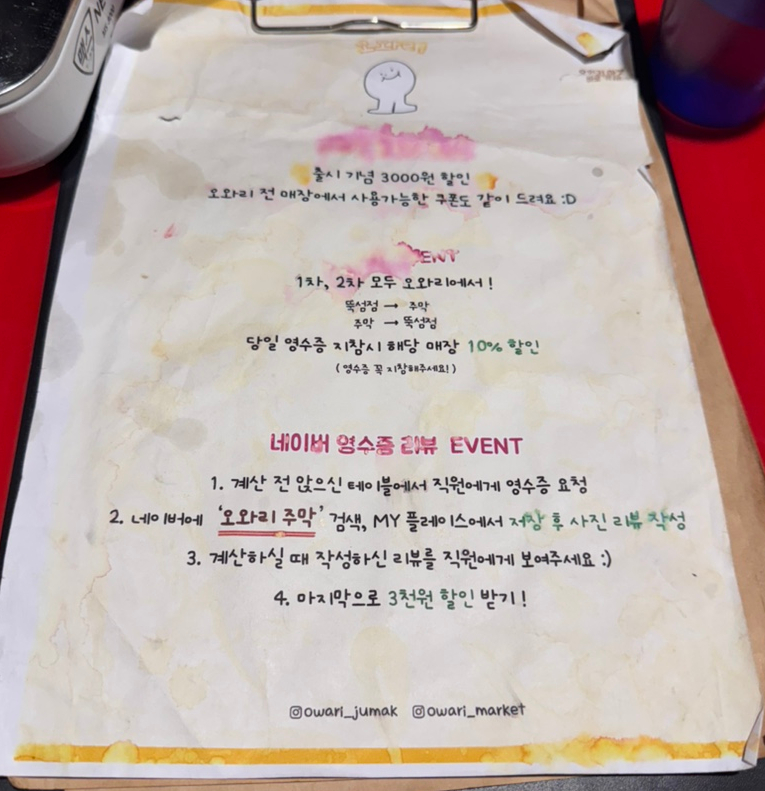 오와리
출시 기념 3000원 할인
오와리 전 매장에서 사용가능한 쿠폰도 같이 드려요 :D
ENT
1차, 2차 모두 오와리에서!
뚝섬점 → 주막
주막 → 뚝섬점
당일 영수증 지참시 해당 매장 10% 할인
(영수증 꼭 지참해주세요!)
네이버 영수증 리뷰 EVENT
1. 계산 전 앉으신 테이블에서 직원에게 영수증 요청
2. 네이버에 '오와리 주막' 검색, MY 플레이스에서 저장 후 사진 리뷰 작성
3. 계산하실 때 작성하신 리뷰를 직원에게 보여주세요 :)
4. 마지막으로 3천원 할인 받기!
owari_jumak owari_market